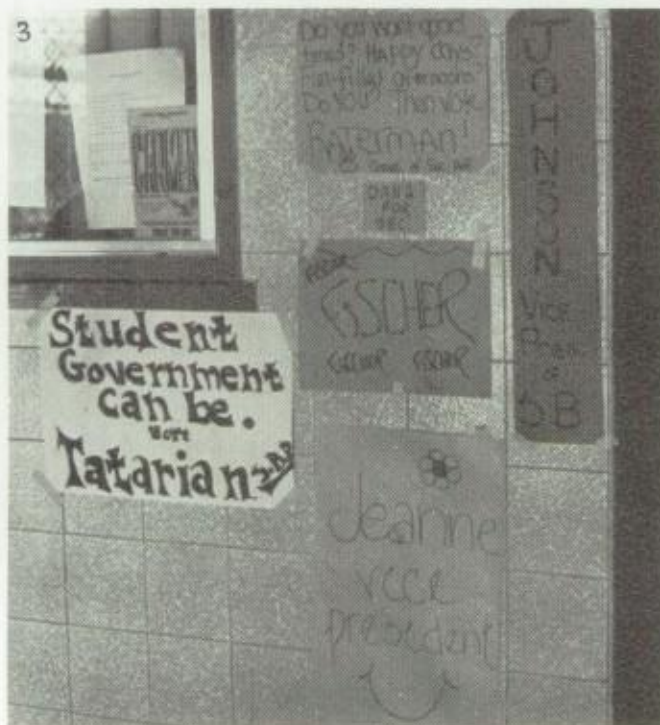 3
Do you want good
times? Happy days?
fun-filled afternoons?
Do YOU? Then Vote
RATERMAN!
DANA
FOR
SEC
FISCHER
FISCHER FISCHER
JOHNSON
Vice
Pres.
of
SB
Student
Government
can be.
VOTE
Tatarian
Jeanne
vice
president